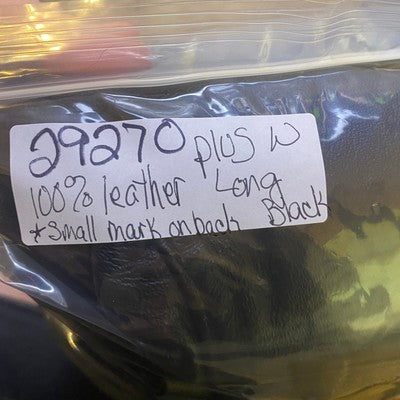 29270 plus w
100% leather Long
*Small mark on back Black